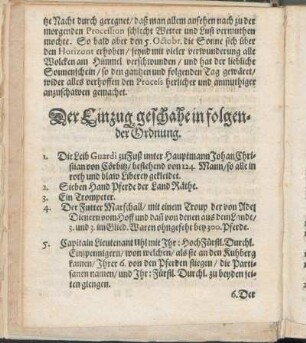 tze Nacht durch geregnet / daß man allem ansehen nach zu der
morgenden Procession schlecht Wetter und Lufft vermuthen
mochte. So bald aber den 5. Octobr. die Sonne sich über
den Horizont erhoben / seynd mit vieler verwunderung alle
Wolcken am Himmel verschwunden / und hat der liebliche
Sonnenschein / so den gantzen und folgenden Tag gewäret /
wider alles verhoffen den Process herlicher und anmuthiger
anzuschawen gemachet.
Der Einzug geschahe in folgen-
der Ordnung.
1. Die Leib Guardi zu Fuß unter Hauptmann Johan Chri-
stian von Cörbitz / bestehend von 124. Mann / so alle in
roth und blaw Liberey gekleidet.
2. Sieben Hand Pferde der Land Räthe.
3. Ein Trompeter.
4. Der Futter Marschall / mit einem Troup der von Adel
Dienern vom Hoff und daß von denen aus dem Lande /
3. und 3. im Glied. Waren ohngefehr bey 300. Pferde.
5. Capitain Lieutenant Uhl mit Ihr: Hoch Fürstl. Durchl.
Einspennigern / von welchen / als sie an den Kuhberg
kamen / Ihrer 6. von den Pferden stiegen / die Parti-
sanen namen / und Ihr: Fürstl. Durchl. zu beyden sei-
ten giengen.
6. Der